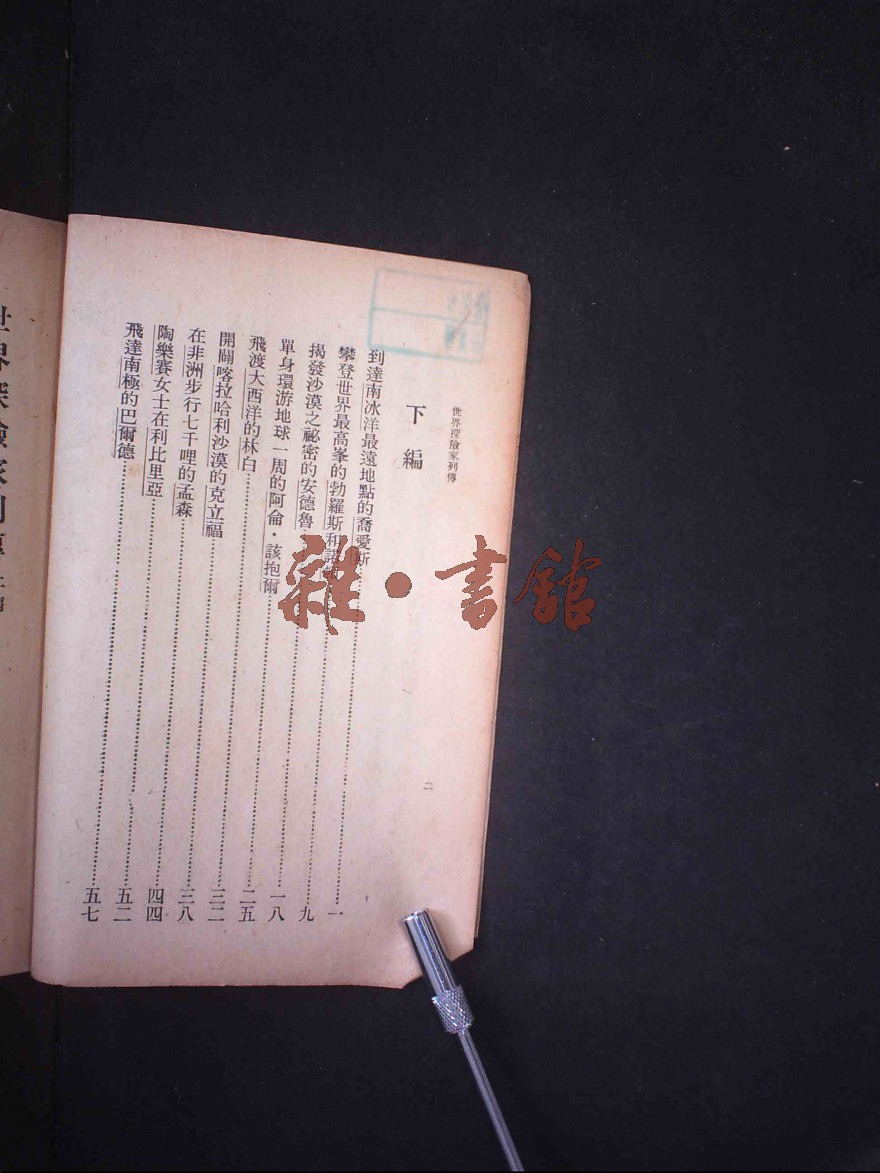 世界探險家列傳
二
下編
到達南冰洋最遠地點的喬愛斯……一
攀登世界最高峯的勃羅斯和諾……九
揭發沙漠之祕密的安德魯……一八
單身環游地球一周的阿侖・該抱爾……二五
飛渡大西洋的林白……三二
開闢喀拉哈利沙漠的克立福……三八
在非洲步行七千哩的孟森……四四
陶樂賽女士在利比里亞……五二
飛達南極的巴爾德……五七
世界探險家列傳
雜・書館